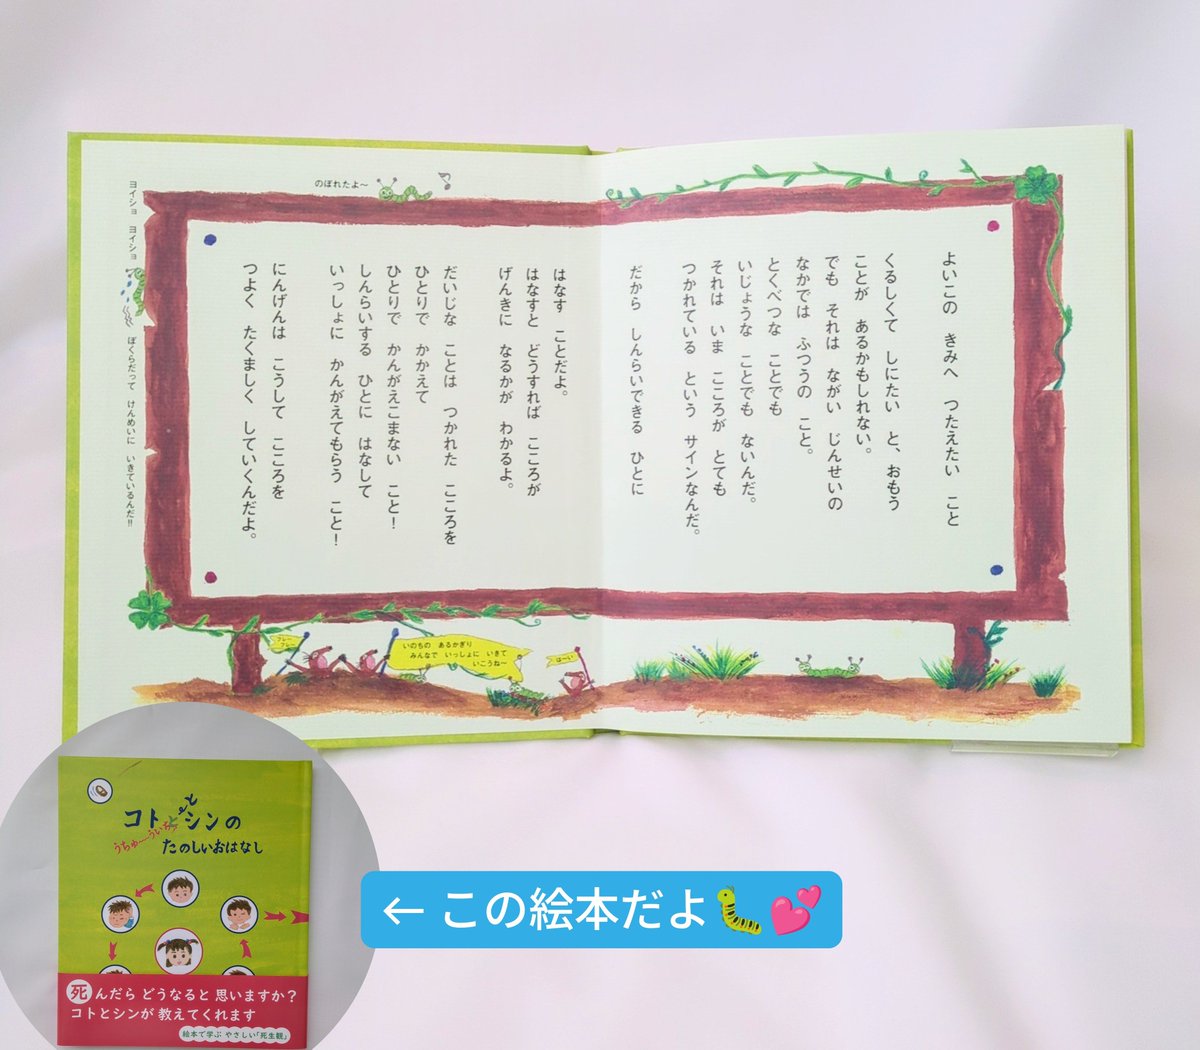 よいこの きみへ つたえたい こと
くるしくて しにたい と、おもう
ことが あるかもしれない。
でも それは ながい じんせいの
なかでは ふつうの こと。
とくべつな ことでも
いじょうな ことでも ないんだ。
それは いま こころが とても
つかれている という サインなんだ。
だから しんらいできる ひとに
はなす ことだよ。
はなすと どうすれば こころが
げんきに なるかが わかるよ。
だいじな ことは つかれた こころを
ひとりで かかえて
ひとりで かんがえこまない こと!
しんらいする ひとに はなして
いっしょに かんがえてもらう こと!
にんげんは こうして こころを
つよく たくましく していくんだよ。
のぼれたよ〜
ヨイショ ヨイショ
ぼくらだって けんめいに いきているんだ!!
フレー
フレー
いのちの あるかぎり
みんなで いっしょに いきて
いこうね〜
はーい
コトとシンの
うちゅ〜ういち
たのしいおはなし
死んだら どうなると 思いますか?
コトとシンが 教えてくれます
絵本で学ぶ やさしい「死生観」
← この絵本だよ🐛💕